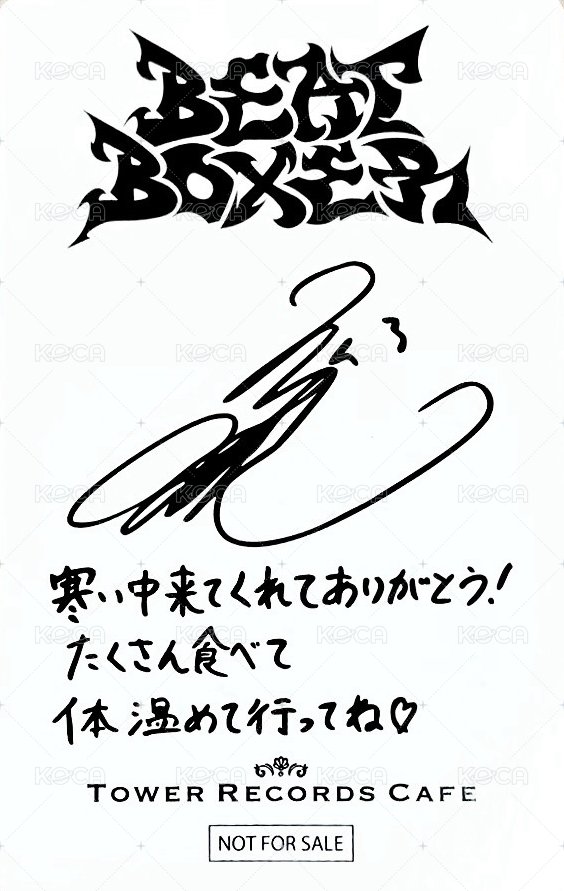 BEAT
BOXER
寒い中来てくれてありがとう!
たくさん食べて
体温めて行ってね♡
TOWER RECORDS CAFE
NOT FOR SALE
KOCA